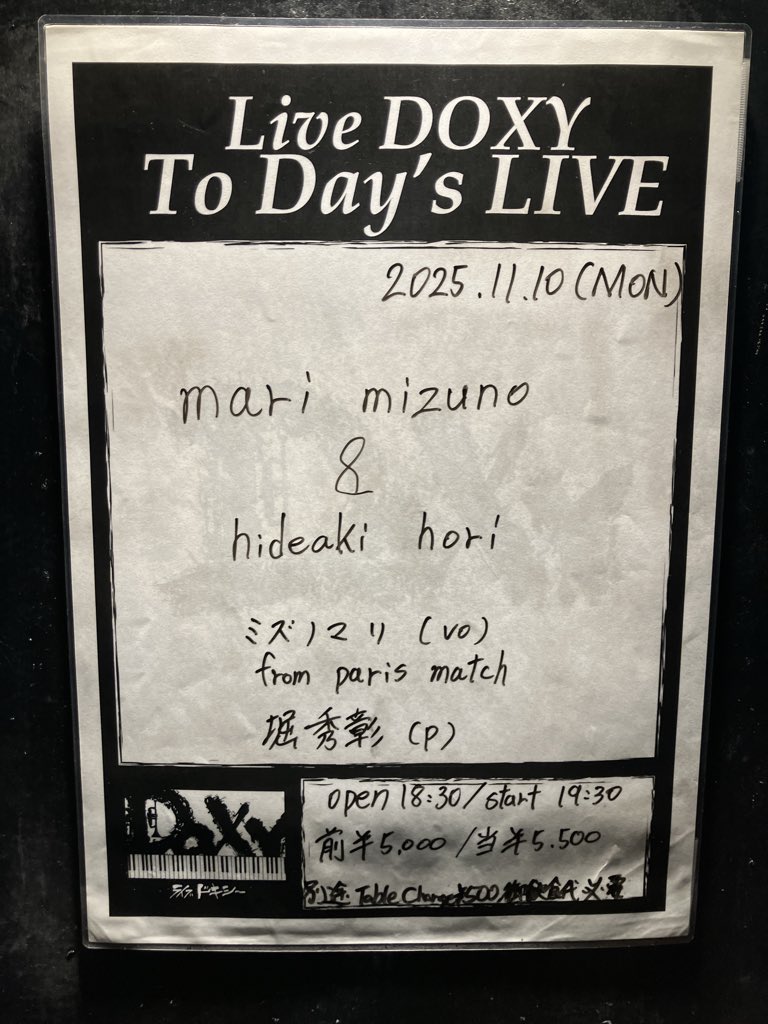 Live DOXY
To Day's LIVE
2025.11.10 (MON)
mari mizuno
&
hideaki hori
ミズノマリ (vo)
from paris match
堀秀彰 (p)
DOXY
ライブドキシー
open 18:30/start 19:30
前¥5,000/当¥5.500
別途 Table Charge¥500 御飲食代 必要